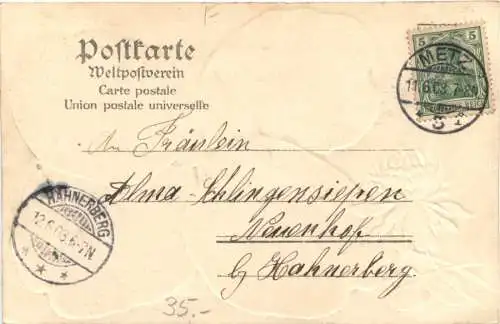 Postkarte
Weltpostverein
Carte postale
Union postale universelle
5 5
METZ
11.6.03. 7-8N
An Fräulein
Alma Schlingensiepen
Neuenhof
b/ Hahnerberg
HAHNERBERG
12.6.03.6-7N
* * *
35.-